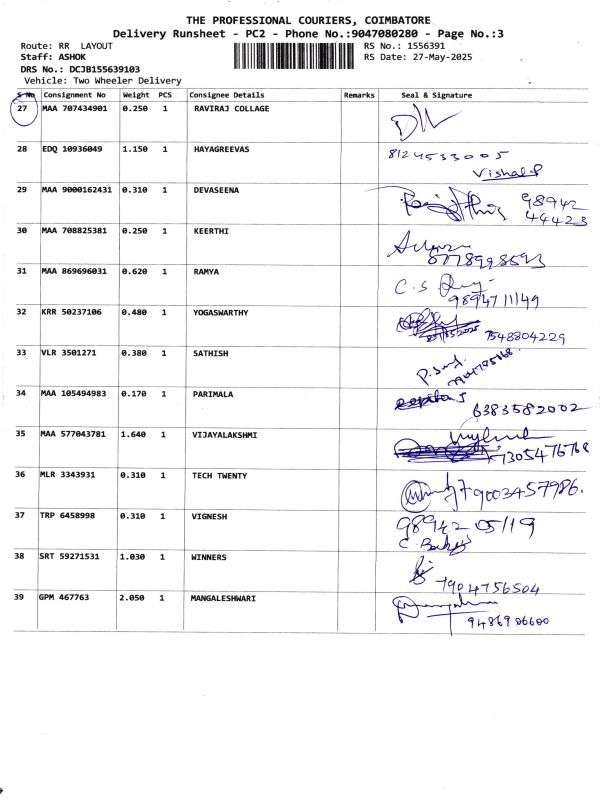 THE PROFESSIONAL COURIERS, COIMBATORE
Delivery Runsheet - PC2 - Phone No.:9047080280 - Page No.:3
Route: RR LAYOUT
RS No.: 1556391
Staff: ASHOK
RS Date: 27-May-2025
DRS No.: DCJB155639103
Vehicle: Two Wheeler Delivery
S No Consignment No Weight PCS Consignee Details Remarks Seal & Signature
27 MAA 707434901 0.250 1 RAVIRAJ COLLAGE
28 EDQ 10936049 1.150 1 HAYAGREEVAS 8124533005
Vishal P
29 MAA 9000162431 0.310 1 DEVASEENA 98942
44423
30 MAA 708825381 0.250 1 KEERTHI
31 MAA 869696031 0.620 1 RAMYA C.S
9894711149
32 KRR 50237106 0.480 1 YOGASWARTHY 7548804229
33 VLR 3501271 0.380 1 SATHISH
34 MAA 105494983 0.170 1 PARIMALA
6383582002
35 MAA 577043781 1.640 1 VIJAYALAKSHMI
7305476768
36 MLR 3343931 0.310 1 TECH TWENTY 7903457986.
37 TRP 6458998 0.310 1 VIGNESH 98942 05119
38 SRT 59271531 1.030 1 WINNERS
7904756504
39 GPM 467763 2.050 1 MANGALESHWARI
9486906600